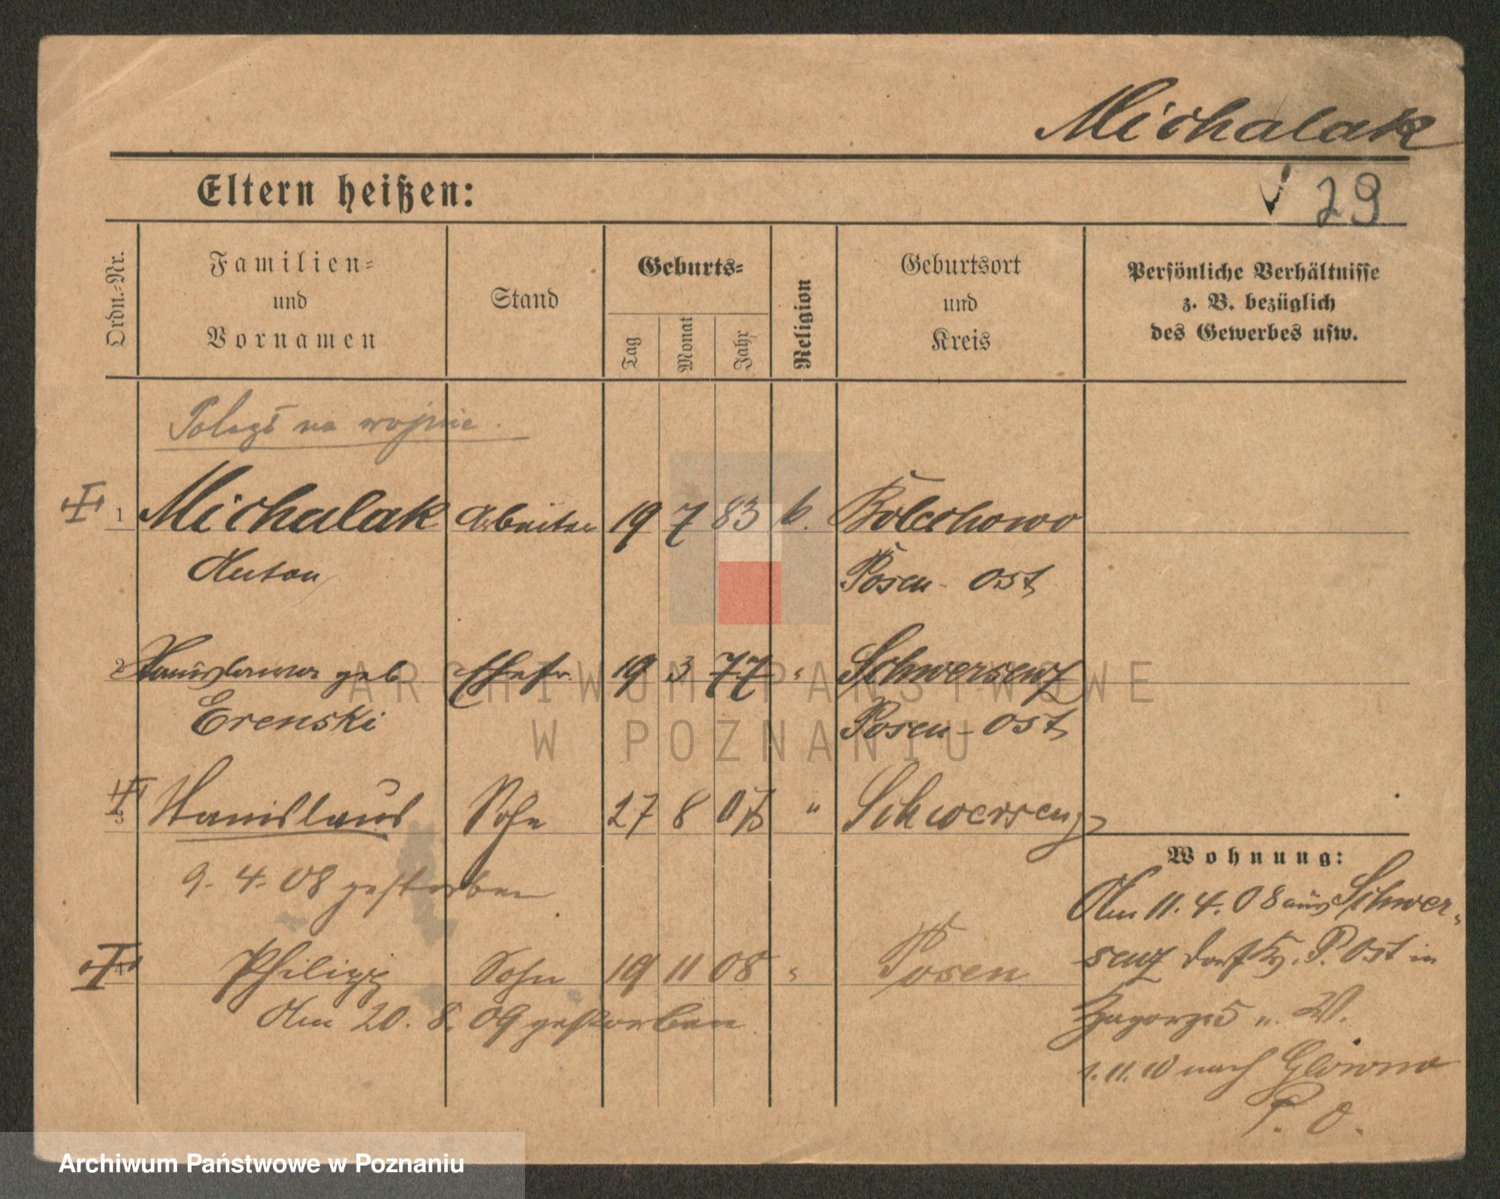 Michalak
Eltern heißen:
29
Ordn.-Nr.
Familien-
und
Vornamen
Stand
Geburts-
Tag
Monat
Jahr
Religion
Geburtsort
und
Kreis
Persönliche Verhältnisse
z. B. bezüglich
des Gewerbes usw.
Poległ na wojnie.
1 Michalak Arbeiter 19 7 83 k. Bolechowo
Anton Posen-Ost
2 Stanislawa geb. Ehefr. 19 3 77 " Schwersenz
Erenski Posen-Ost
3 Stanislaus Sohn 27 8 07 " Schwersenz
9.4.08 gestorben
4 Philipp Sohn 19 11 08 " Posen
Am 20.8.09 gestorben
Wohnung:
Am 11.4.08 aus Schwer-
senz P. Ost in
Zagorze 5 u. W.
1.11.10 nach Glowno
P. O.
ARCHIWUM PAŃSTWOWE
W POZNANIU
Archiwum Państwowe w Poznaniu